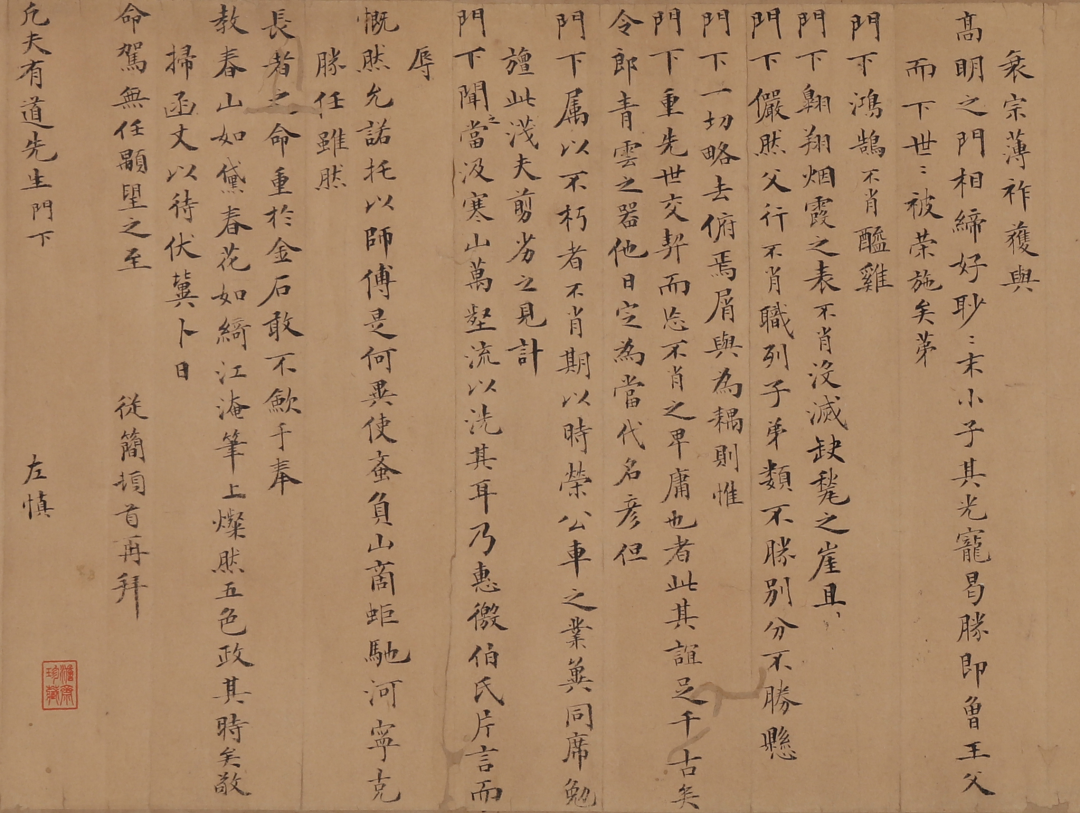 衰宗薄祚獲與
高明之門相締好眇〻末小子其光寵曷勝即魯王父
而下世〻被荣施矣苐
門下鴻鵠不肖醯雞
門下翱翔烟霞之表不肖没滅缺甃之崖且
門下儼然父行不肖職列子弟類不勝別分不勝懸
門下一切略去俯焉屑與為耦則惟
門下重先世交契而忘不肖之卑庸也者此其誼足千古矣
令郎青雲之器他日定為當代名彦但
門下属以不朽者不肖期以時榮公車之業兼同席勉
旃此淺夫剪劣之見計
門下聞之當汲寒山萬壑流以洗其耳乃惠徼伯氏片言而
辱
慨然允諾托以師傅是何異使蚉負山商蚷馳河寧克
勝任雖然
長者之命重於金石敢不歛手奉
教春山如黛春花如綺江淹筆上燦然五色政其時矣敬
掃函丈以待伏冀卜日
命駕無任顒望之至 從簡頓首再拜
凡夫有道先生門下 左慎